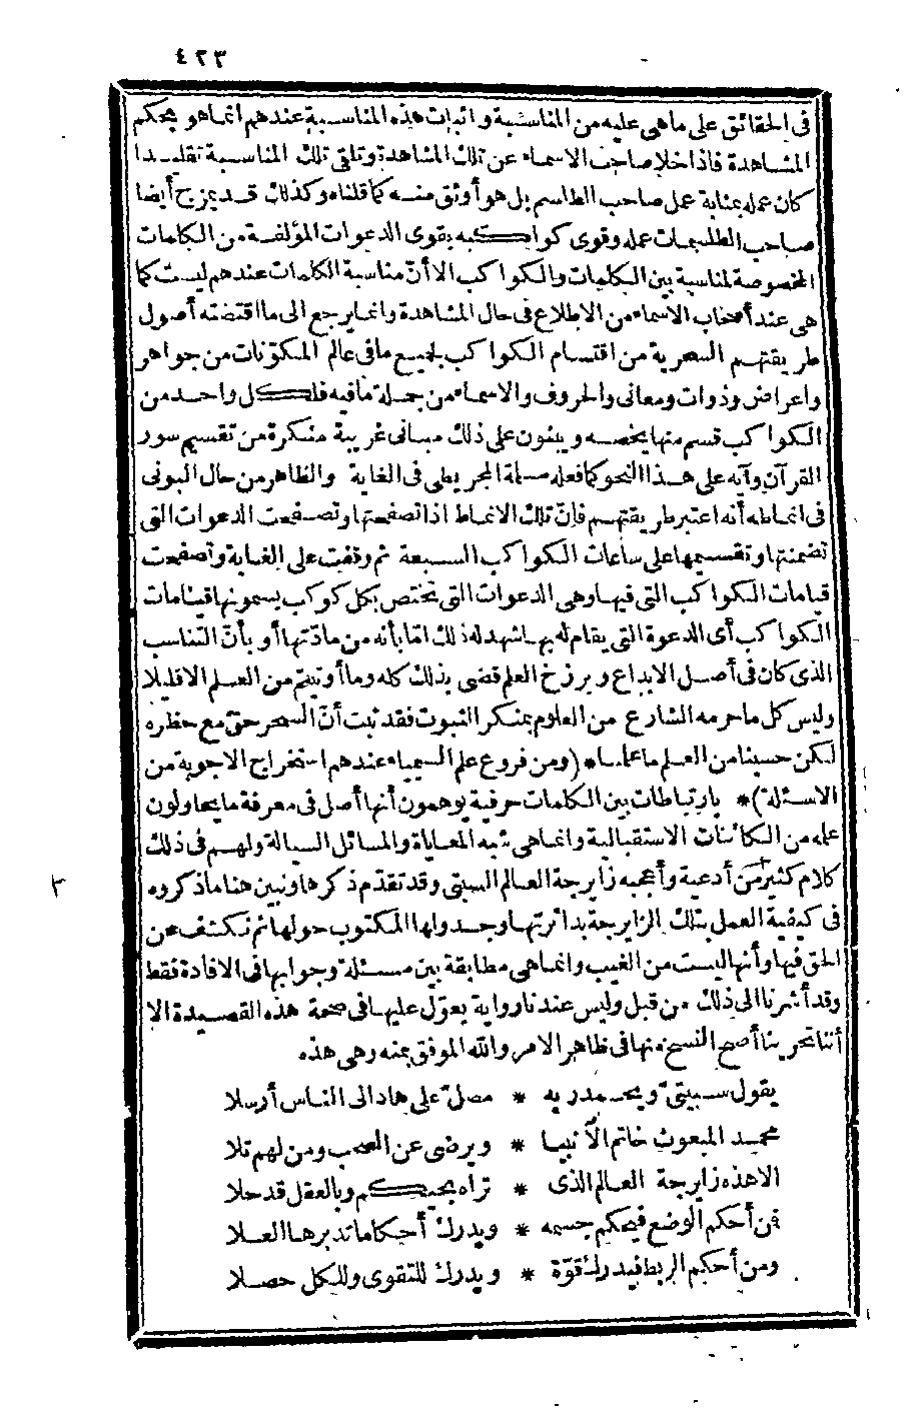 ٤٢٣
فى الحقائق على ماهى عليه من المناسبة واثبات هذه المناسبة عندهم انماهو بحكم
المشاهدة فاذا خلا صاحب الاسماء عن تلك المشاهدة وتلقى تلك المناسبة تقليدا
كان عمله بمثابة عمل صاحب الطلسم بل هو أوثق منه كما قلناه وكذلك قد يمزج أيضا
صاحب الطلسمات عمله وقوى كواكبه بقوى الدعوات المؤلفة من الكلمات
المخصوصة لمناسبة بين الكلمات والكواكب الا أنّ مناسبة الكلمات عندهم ليست كما
هى عند أصحاب الاسماء من الاطلاع فى حال المشاهدة وانما يرجع الى ما اقتضته أصول
طريقتهم السحرية من اقتسام الكواكب لجميع ما فى عالم المكوّنات من جواهر
واعراض وذوات ومعانى والحروف والاسماء من جملة ما فيه فلكل واحد من
الكواكب قسم منها يخصه ويبنون على ذلك مبانى غريبة منكرة من تقسيم سور
القرآن وآيه على هذا النحو كما فعله مسلمة المجريطى فى الغاية والظاهر من حال البونى
فى انماطه أنه اعتبر طريقتهم فانّ تلك الانماط اذا تصفحتها وتصفحت الدعوات التى
تضمنتها وتقسيمها على ساعات الكواكب السبعة ثم وقفت على الغاية وتصفحت
قيامات الكواكب التى فيها وهى الدعوات التى تختص بكل كوكب يسمونها قيامات
الكواكب أى الدعوة التى يقام له بها شهد له ذلك امّا بأنه من مادّتها أو بأنّ التناسب
الذى كان فى أصل الابداع وبرزخ العلم قضى بذلك كله وما أوتيتم من العلم الا قليلا
وليس كل ما حرمه الشارع من العلوم بمنكر الثبوت فقد ثبت أنّ السحر حق مع حظره
لكن حسبنا من العلم ما علمنا * (ومن فروع علم السيمياء عندهم استخراج الاجوبة من
الاسئلة) * بارتباطات بين الكلمات حرفية يوهمون أنها أصل فى معرفة ما يحاولون
علمه من الكائنات الاستقبالية وانماهى شبه المعاياة والمسائل السيالة ولهم فى ذلك
كلام كثير من أدعية وأعجبه زايرجة العالم السبتى وقد تقدّم ذكرها ونبين هنا ما ذكروه
٣
فى كيفية العمل بتلك الزايرجة بدائرتها وجدولها المكتوب حولها ثم نكشف عن
الحق فيها وأنها ليست من الغيب وانماهى مطابقة بين مسئلة وجوابها فى الافادة فقط
وقد أشرنا الى ذلك من قبل وليس عندنا رواية يعوّل عليها فى صحة هذه القصيدة الا
أننا تحرينا أصح النسخ منها فى ظاهر الامر والله الموفق بمنه وهى هذه
يقول سبيتىّ ويحمد ربه * مصلّ على هاد الى الناس أرسلا
محمد المبعوث خاتم الأنبيا * ويرضى عن الصحب ومن لهم تلا
الا هذه زايرجة العالم الذى * تراه بحيكم وبالعقل قد حلا
فمن أحكم الوضع فيحكم جسمه * ويدرك أحكاما تدبرها العلا
ومن أحكم الربط فيدرك قوّة * ويدرك للتقوى وللكل حصلا